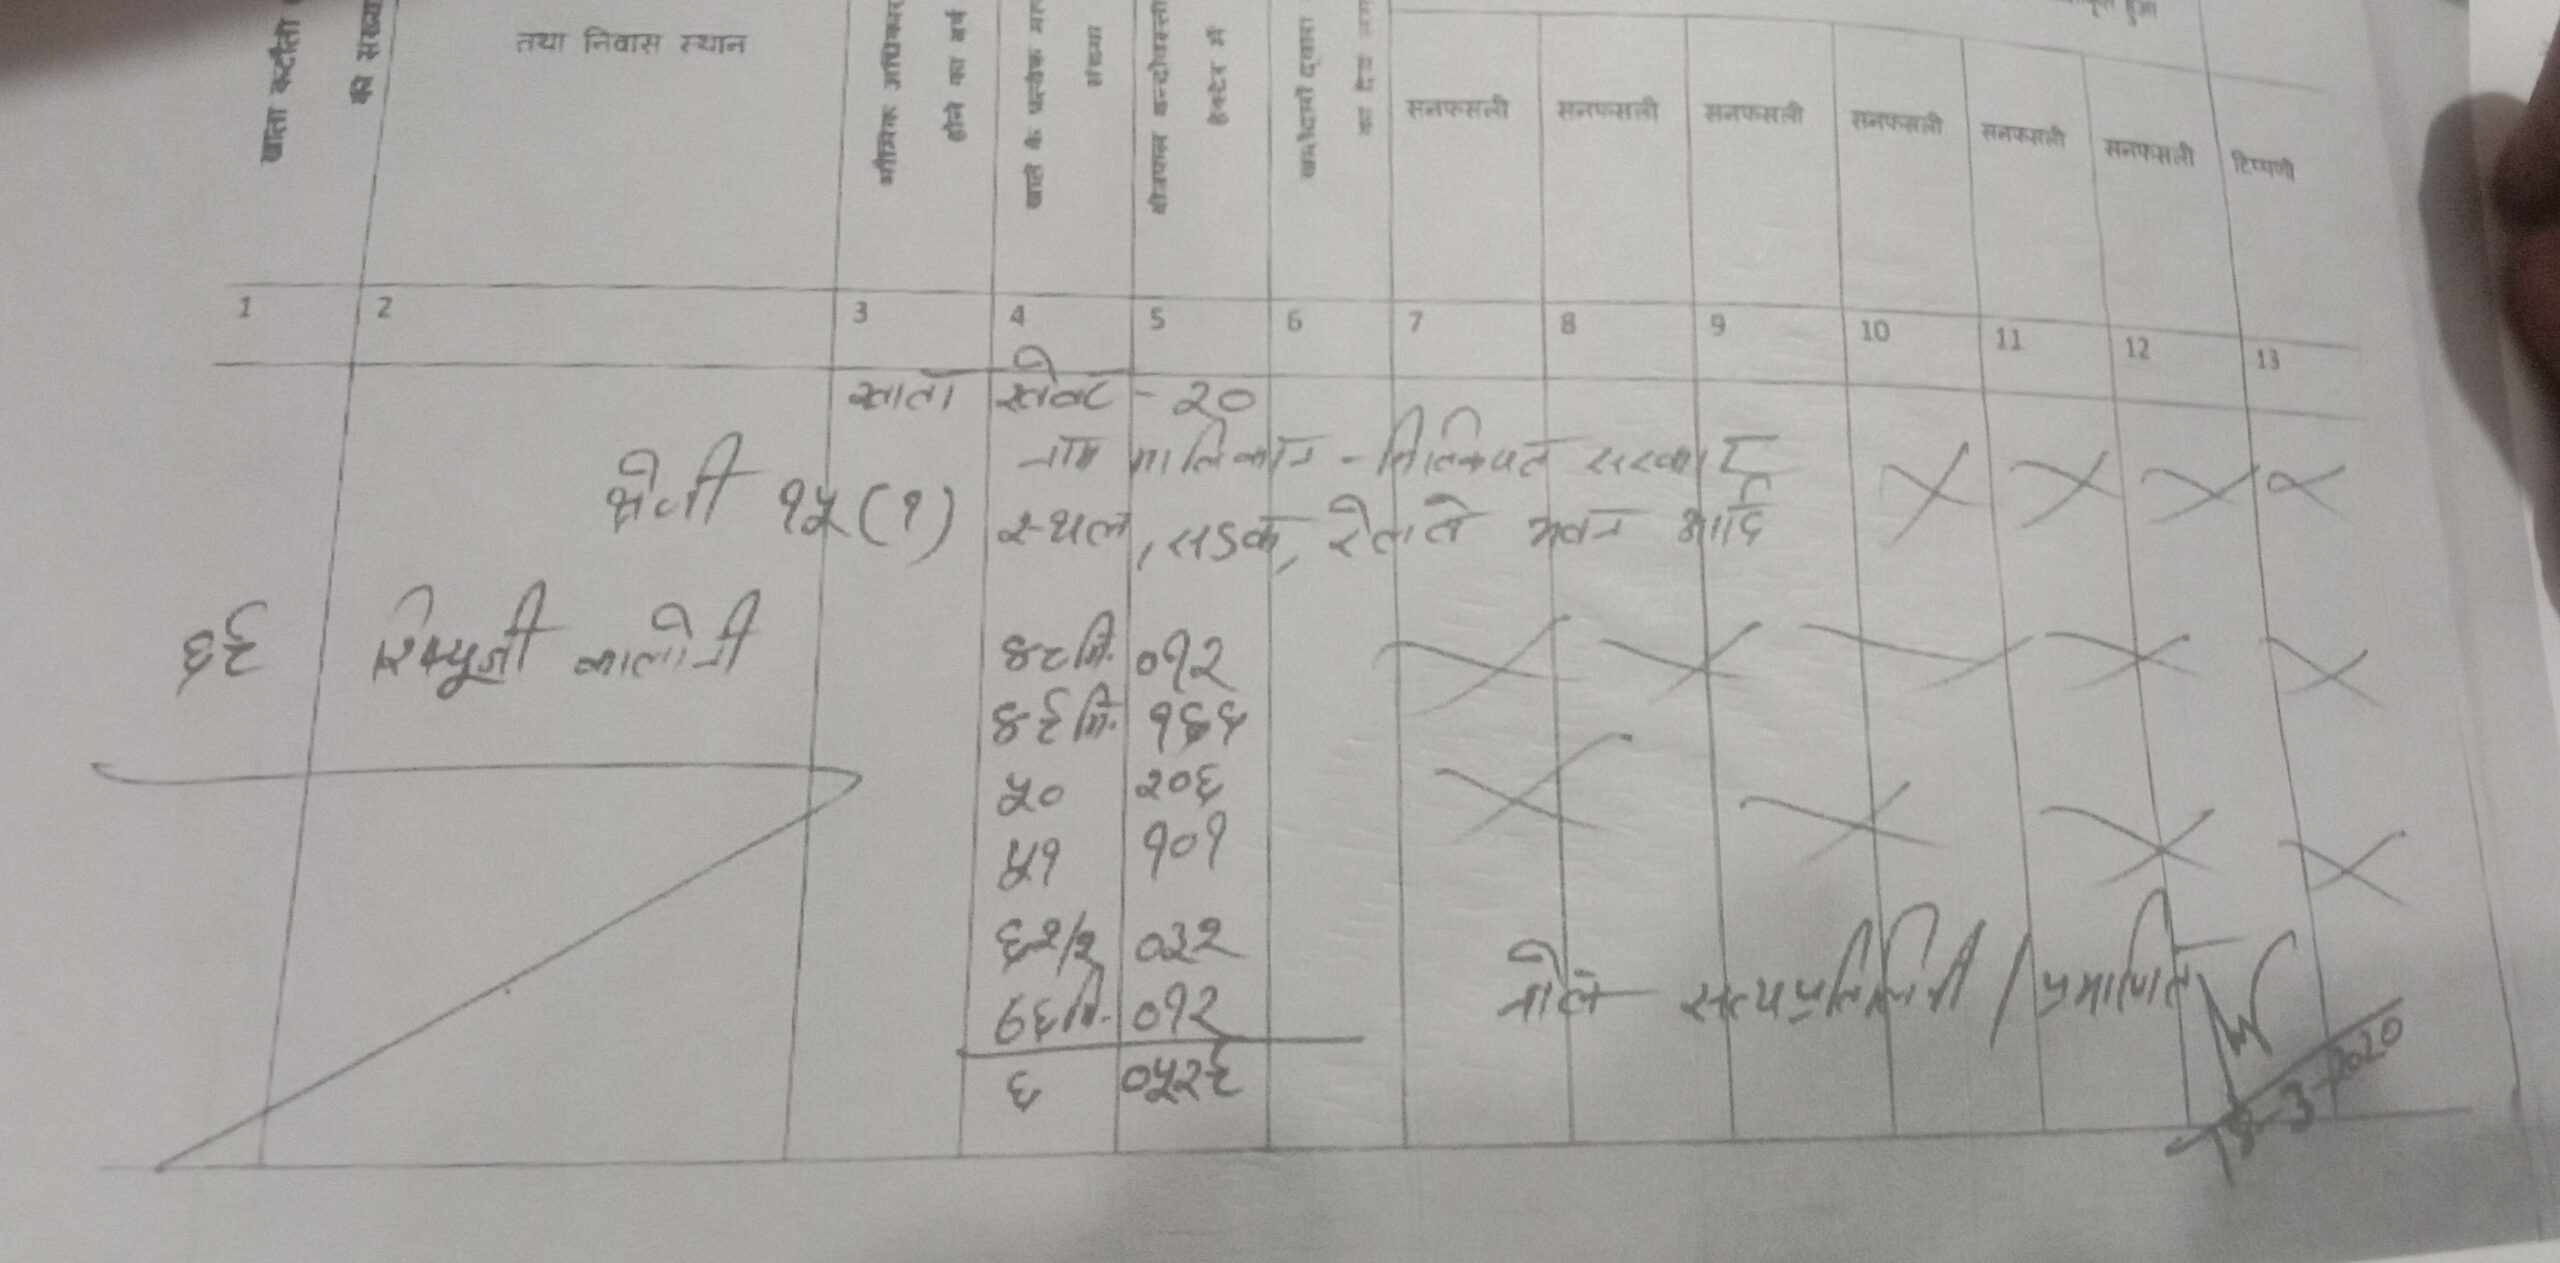 खाता
की संख्या
तथा निवास स्थान
भौमिक अधिकार
होने का वर्ष
खाते के प्रत्येक
संख्या
क्षेत्रफल बन्दोबस्ती
हेक्टेर में
खातेदारों द्वारा
का देय
हुआ
सनफसली सनफसली सनफसली सनफसली सनफसली सनफसली टिप्पणी
1 2 3 4 5 6 7 8 9 10 11 12 13
खाता खेवट - २०
नाम मालिकान - मिल्कियत सरकार
श्रेणी १५ (१) स्थल, सड़क, रेलवे भवन आदि
६९ रिफ्यूजी कालोनी ४८ मि. ०१२
४९ मि. १६६
५० २०६
५१ १०१
६२/२ ०३२
७६ मि. ०१२
६ ०५२९
नोट- सत्यप्रतिलिपी / प्रमाणित
18-3-2020